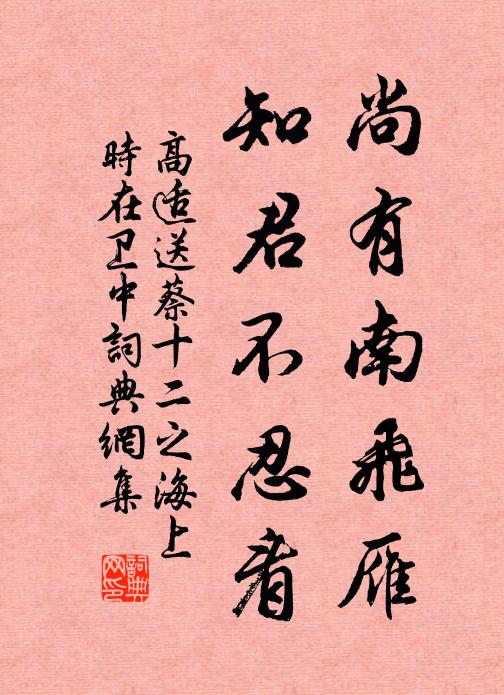 尚有南飛雁
知君不忍看
高适送蔡十二之海上
時在卫中詞典網集
詞典
网印